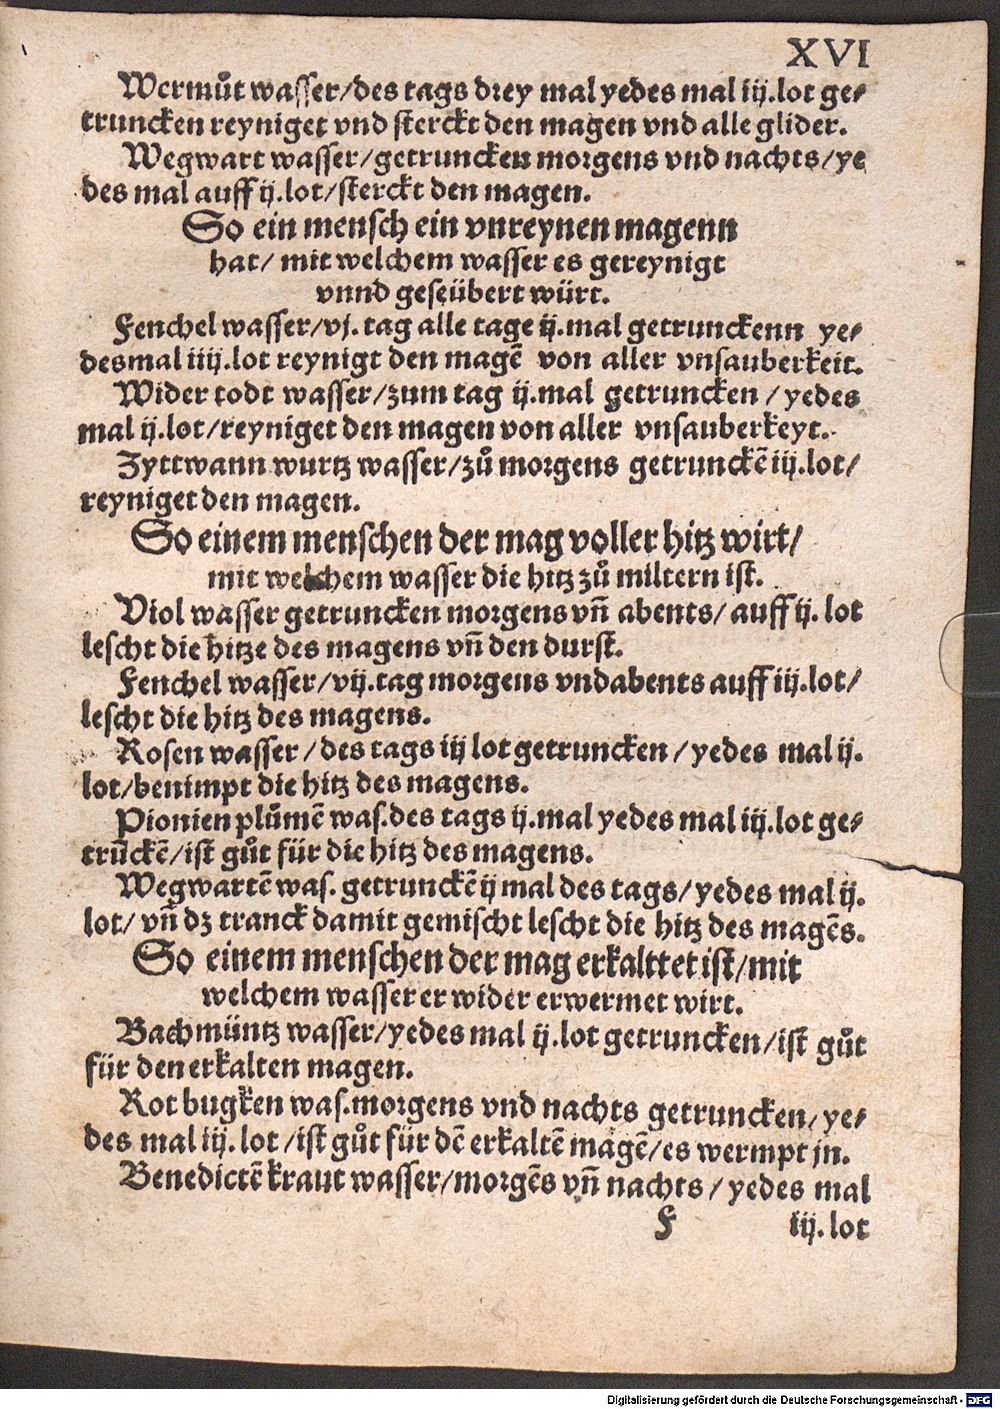 XVI
Wermůt wasser/des tags drey mal yedes mal iij.lot ge⸗
truncken reyniget vnd sterckt den magen vnd alle glider.
Wegwart wasser/getruncken morgens vnd nachts/ye
des mal auff ij.lot/sterckt den magen.
So ein mensch ein vnreynen magenn
hat/ mit welchem wasser es gereynigt
vnnd geseübert würt.
Fenchel wasser/vj. tag alle tage ij.mal getrunckenn ye⸗
desmal iiij.lot reynigt den magē von aller vnsauberkeit.
Wider todt wasser/zum tag ij.mal getruncken / yedes
mal ij.lot/reyniget den magen von aller vnsauberkeyt.
Zyttwann wurtz wasser/zů morgens getrunckē iij.lot/
reyniget den magen.
So einem menschen der mag voller hitz wirt/
mit welchem wasser die hitz zů miltern ist.
Viol wasser getruncken morgens vñ abents/ auff ij. lot
lescht die hitze des magens vñ den durst.
Fenchel wasser/vij.tag morgens vndabents auff iij.lot/
lescht die hitz des magens.
Rosen wasser /des tags iij lot getruncken /yedes mal ij.
lot/benimpt die hitz des magens.
Pionien plůmē was.des tags ij.mal yedes mal iij.lot ge⸗
trūckē/ist gůt für die hitz des magens.
Wegwartē was. getrunckē ij mal des tags/yedes mal ij.
lot/ vñ dz tranck damit gemischt lescht die hitz des magēs.
So einem menschen der mag erkalttet ist/mit
welchem wasser er wider erwermet wirt.
Bachmüntz wasser/yedes mal ij.lot getruncken/ist gůt
für den erkalten magen.
Rot bugken was.morgens vnd nachts getruncken/ye⸗
des mal iij. lot /ist gůt für dē erkaltē magē/es wermpt jn.
Benedictē kraut wasser/morgēs vñ nachts / yedes mal
F iij.lot
Digitalisierung gefördert durch die Deutsche Forschungsgemeinschaft - DFG